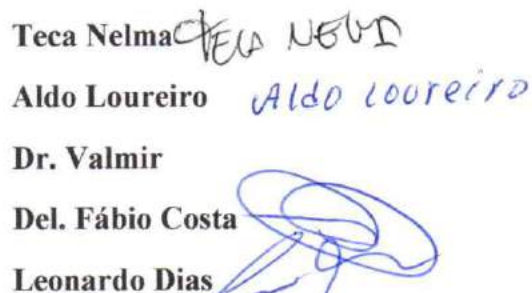 Teca Nelma Teca Nelma
Aldo Loureiro Aldo Loureiro
Dr. Valmir
Del. Fábio Costa
Leonardo Dias